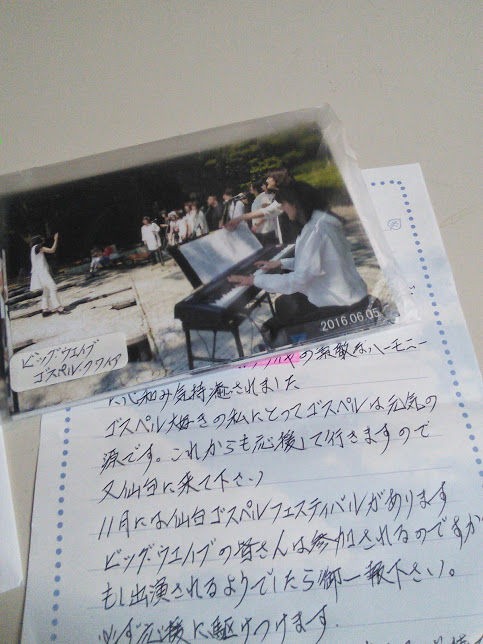 2016.06.05
ビッグウェイブ
ゴスペルクワイア
の素敵なハーモニー
に心和み気持癒されました
ゴスペル大好きの私にとってゴスペルは元気の
源です。これからも応援して行きますので
又仙台に来て下さい
11月には仙台ゴスペルフェスティバルがあります
ビッグウエイブの皆さんは参加されるのですか
もし出演されるようでしたら御一報下さい。
必ず応援に駆けつけます.